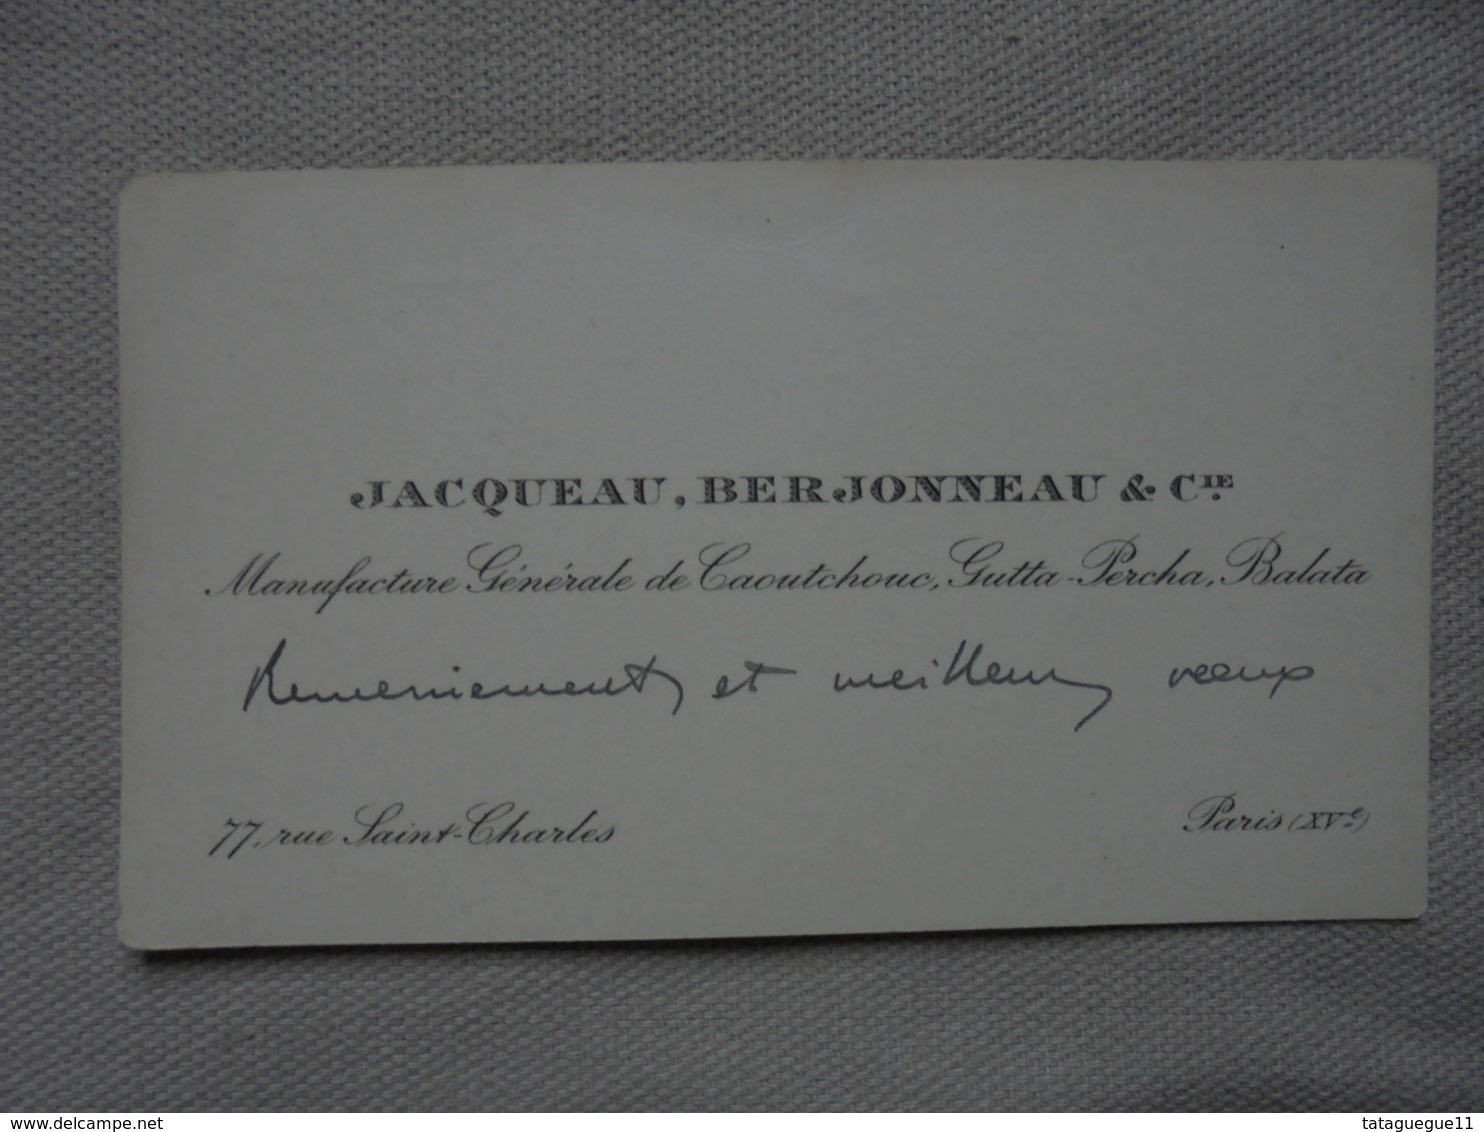 JACQUEAU, BERJONNEAU & CIE
Manufacture Générale de Caoutchouc, Gutta-Percha, Balata
Remerciements et meilleurs vœux
77, rue Saint-Charles
Paris (XVe)
delcampe.net
tataguegue11